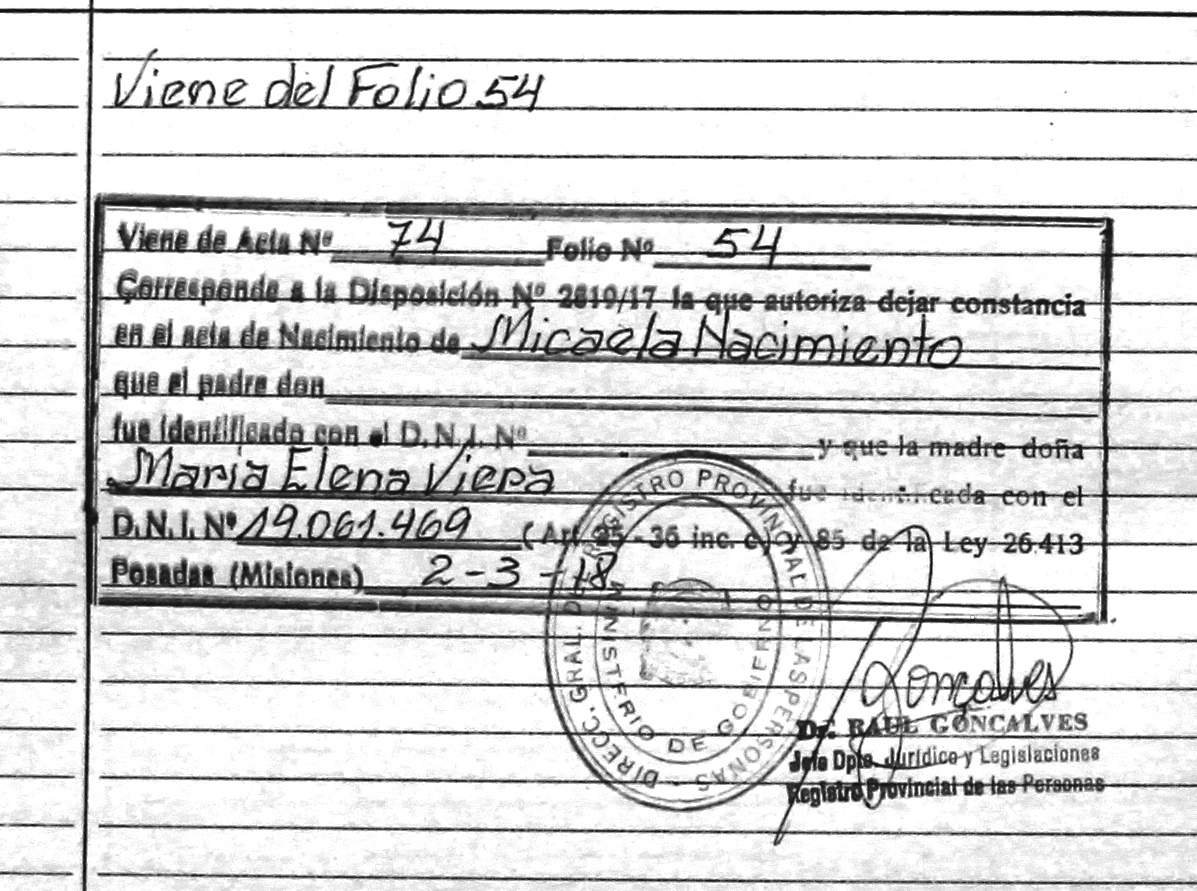 Viene del Folio 54
Viene de Acta Nº 74 Folio Nº 54
Corresponde a la Disposición Nº 2819/17 la que autoriza dejar constancia
en el acta de Nacimiento de Micaela Nacimiento
que el padre don
fue identificado con el D.N.I. Nº y que la madre doña
Maria Elena Viera fue identificada con el
D.N.I. Nº 19.061.469 (Art. 35 - 36 inc. c) y 85 de la Ley 26.413
Posadas (Misiones) 2-3-18
DIRECC. GRAL. DE REGISTRO PROVINCIAL DE LAS PERSONAS
MINISTERIO DE GOBIERNO
Goncalves
Dr. RAUL GONCALVES
Jefe Dpto. Jurídico y Legislaciones
Registro Provincial de las Personas